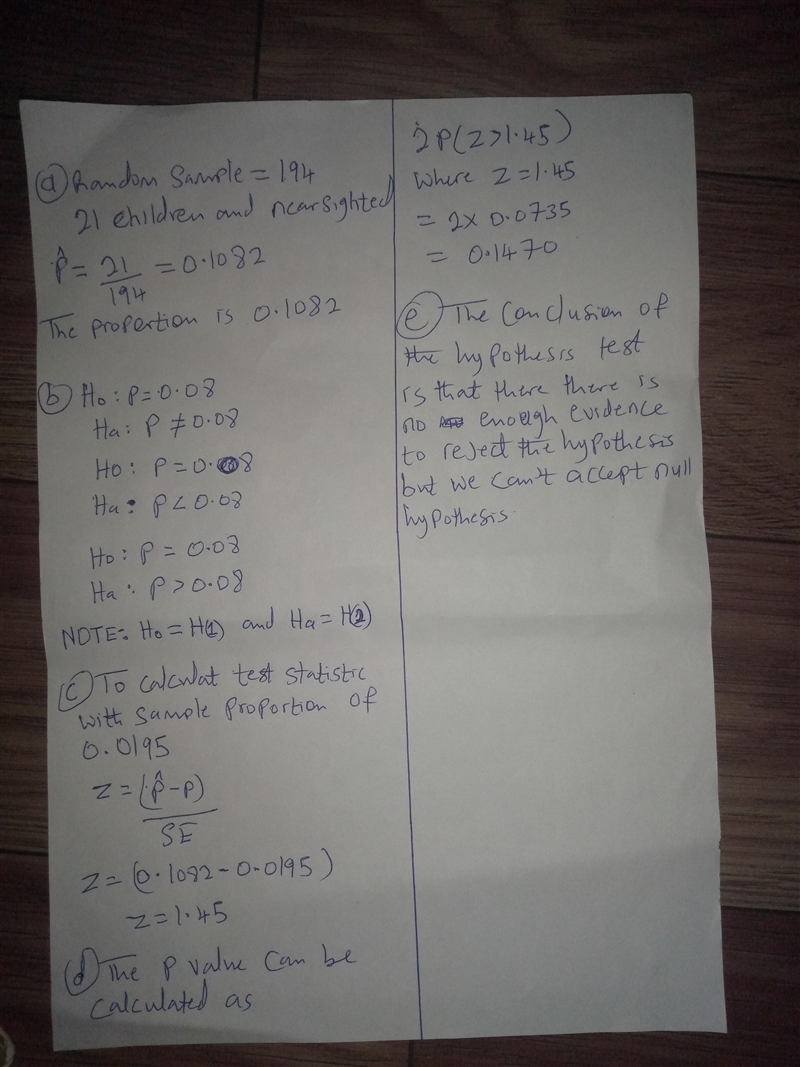 ⓐ Random Sample = 194
21 children and nearsighted
p̂ = 21/194 = 0.1082
The proportion is 0.1082
ⓑ Ho: P=0.08
Ha: P ≠ 0.08
Ho: P = 0.08
Ha: P < 0.08
Ho: P = 0.08
Ha: P > 0.08
NOTE: Ho = H(1) and Ha = H(2)
ⓒ To calculat test statistic
with sample proportion of
0.0195
Z = (p̂ - p)
SE
Z = (0.1082 - 0.0195)
Z = 1.45
ⓓ The p value can be
calculated as
2P(Z>1.45)
Where Z = 1.45
= 2x 0.0735
= 0.1470
ⓔ The Conclusion of
the hypothesis test
is that there there is
no enough evidence
to reject the hypothesis
but we can't accept null
hypothesis.